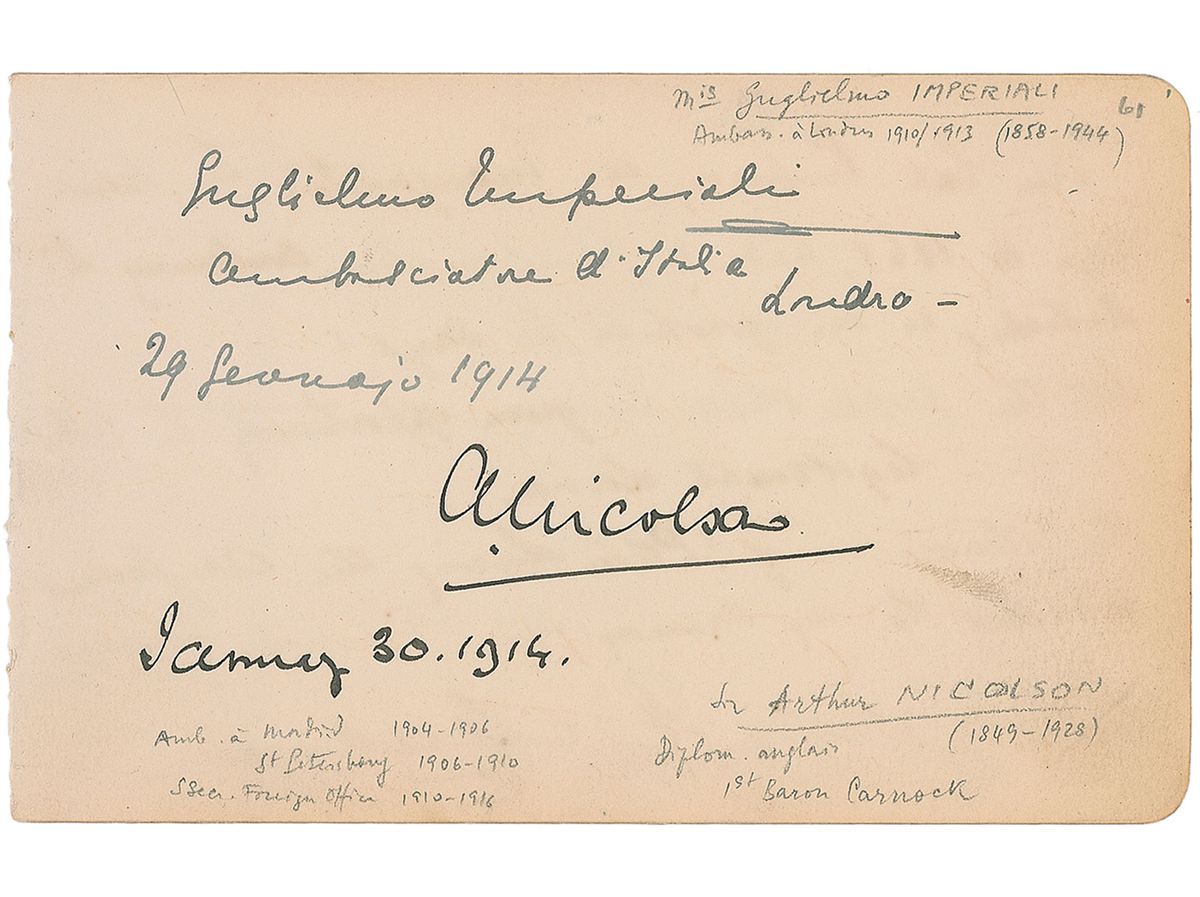 Mis Guglielmo IMPERIALI 61
Ambass. à Londres 1910/1913 (1858-1944)
Guglielmo Imperiali
Ambasciatore d'Italia
Londra -
29 Gennajo 1914
A Nicolson
January 30. 1914.
Sir Arthur NICOLSON
(1849-1928)
Amb. à Madrid 1904-1906
St Petersbourg 1906-1910
SSecr. Foreign Office 1910-1916
Diplom. anglais
1st Baron Carnock